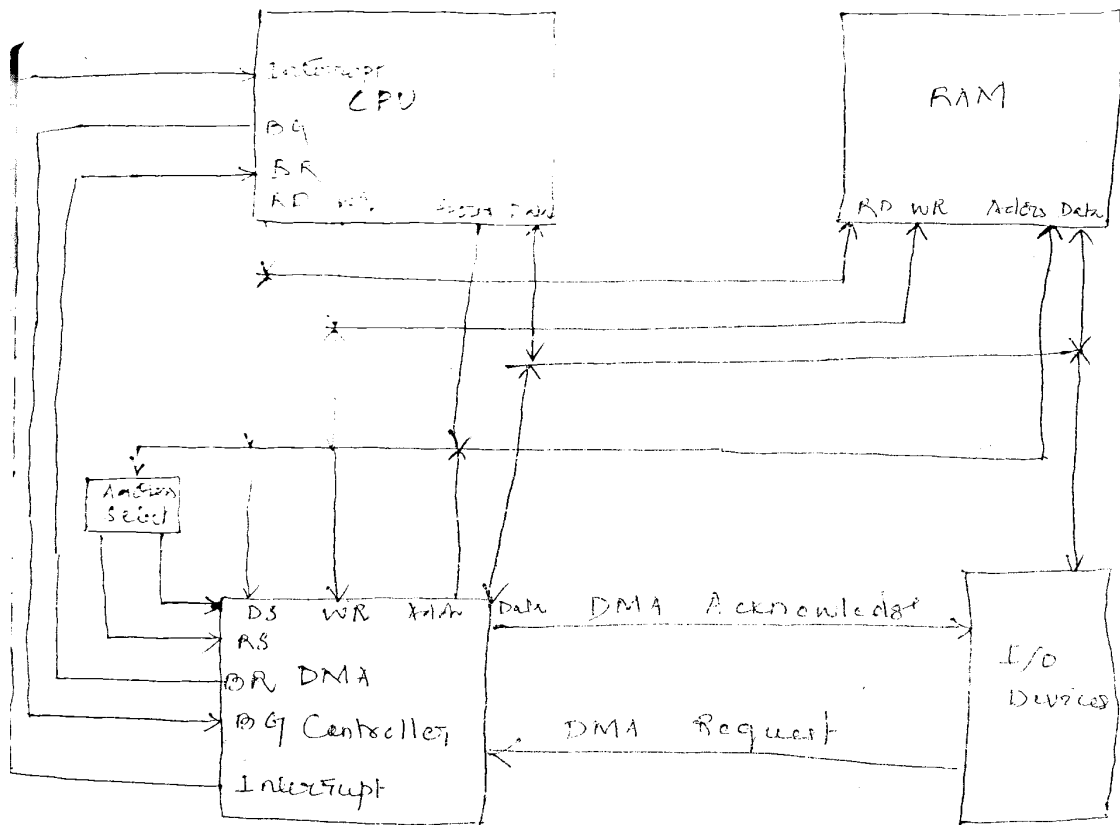 Interrupt
CPU
BG
BR
RD WR
RAM
RD WR Adders Data
Select
DS WR Data
RS
BR DMA
BG Controller
Interrupt
DMA Acknowledge
DMA Request
I/O
Devices